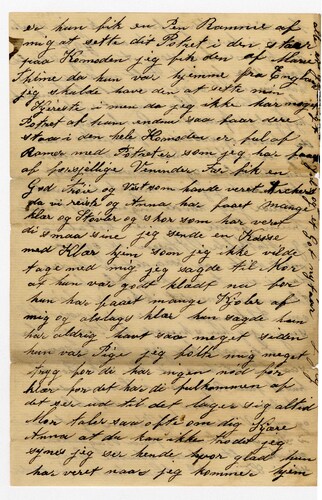 er hun fik en Pen Ramme af
mig at sette dit Potret i den staar
paa Komoden jeg fik den af Marie
Thime da hun var hjemme fra England
jeg skulde have den at sette min
Kjæreste i men da jeg ikke har noget
Potret at ham endnu saa faar dere
staa i den hele Komoden er ful af
Ramer med Potreter som jeg har faaet
af forsjellige Veninder Far fik en
God Trøie og Vest som havde veret
da vi reiste og Anna har faaet mange
klær og Støvler og skor som har veret
di smaa sine jeg sende en Kasse
med Klær hjem som jeg ikke vilde
tage med mig jeg sagde til Mor
at hun var godt kladt nu for
hun har faaet mange Kjoler af
mig og alslags klær hun sagde hun
har aldrig havt saa meget siden
hun var Pige jeg følte mig meget
tryg for di har ingen nød for
klær for det har di fulkommen af
det ser ud til det lager sig altid
Mor taler saa ofte om dig Kjære
Anna at du kan ikke trode jeg
synes jeg ser hende hvor glad hun
har veret naar jeg kommer hjem